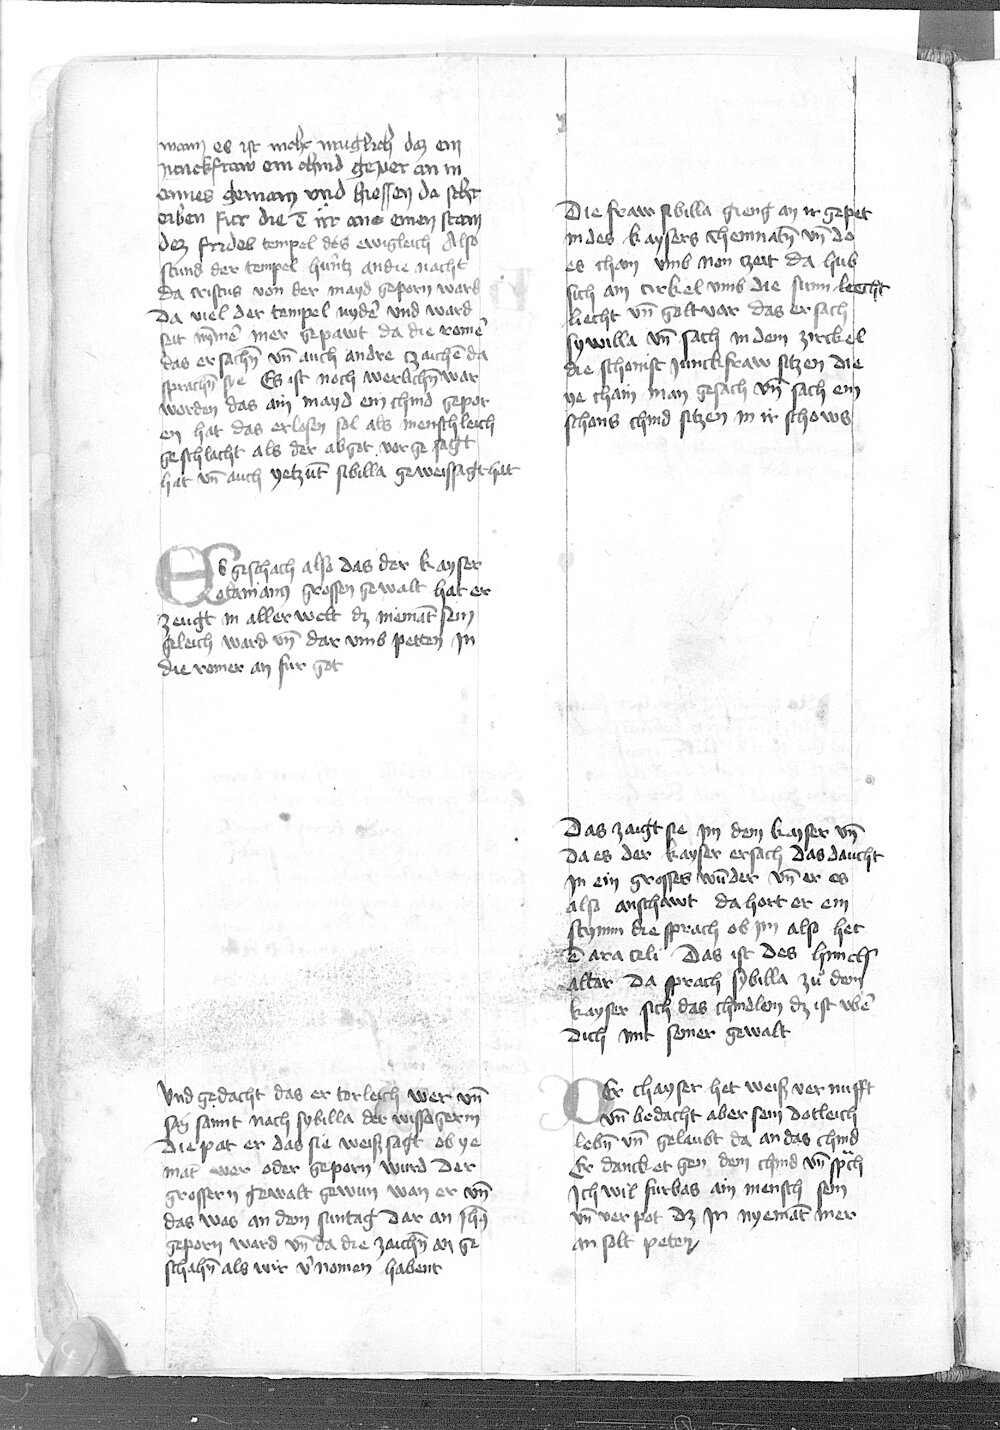 wann es ist nicht muglich daz ein
junckfraw ein chind geper an in
eines gemain vnd hiessen da schr
eiben fur die
dez frides tempel des ewigleich Also
stund der tempel huntz an die nacht
da cristus von der mayd geporn ward
Da viel der tempel nyd' vnd ward
seit nȳme mer gepawt da die rome'
das ersachn̄ vn̄ auch andre czaichē da
sprachn̄ sye Es ist noch werlichn̄ war
worden das ain mayd ein chind gepor
en hat das erlosen sol als menschleich
geschlacht als der abgot vor gesagt
hat vn̄ auch yetzūt sibilla geweissagt hat
Es geschach also das der kayser
octauianꝰ grossen gewalt hat er
zeugt in aller welt dz niemāt sein
geleich ward vn̄ dar vmb petten jn
die romer an fur got
Vnd gedacht das er torleich wer vn̄
sannt nach sybilla der wissagerin
Die pat er das sie weiß sagt ob ye
mat wer oder geporn wurd Der
grossern gewalt gewun wan er vn̄
das was an dem suntag Dar an jhꝰ
geporn ward vn̄ da die zaichn̄ an ge
schahn̄ als wir v'nomen habent
Die fraw sibilla gieng an ir gepet
in des kaysers chemnatn̄ vn̄ do
es cham vmb non czeit da hub
sich ain cirkel vmb die sunn leecht
liecht vn̄ goltvar das ersach
sywilla vn̄ sach in dem zirckel
die schonist junckfraw sitzen die
ye chain man gesach vn̄ sach ein
schons chind sitzen in ir schows
Das zaigt sie jm dem kayser vn̄
Da es der kayser ersach das daucht
jn ein grosses wūder vn̄ er es
also anschawt da hort er ein
stymm die sprach ob jm also het
ara celi Das ist des himels
altar Da sprach sybilla zu dem
kayser sich das chindlein dz ist vbe'
Dich mit seiner gewalt
Der chayser het weiß vernufft
vn̄ bedacht aber sein dotleich
lebn̄ vn̄ gelaubt da an das chind
Er dancket gen dem chind vn̄ sp̄ch
Ich wil furbas ain mensch sein
vn̄ verpot dz jn nyemāt mer
an solt peten